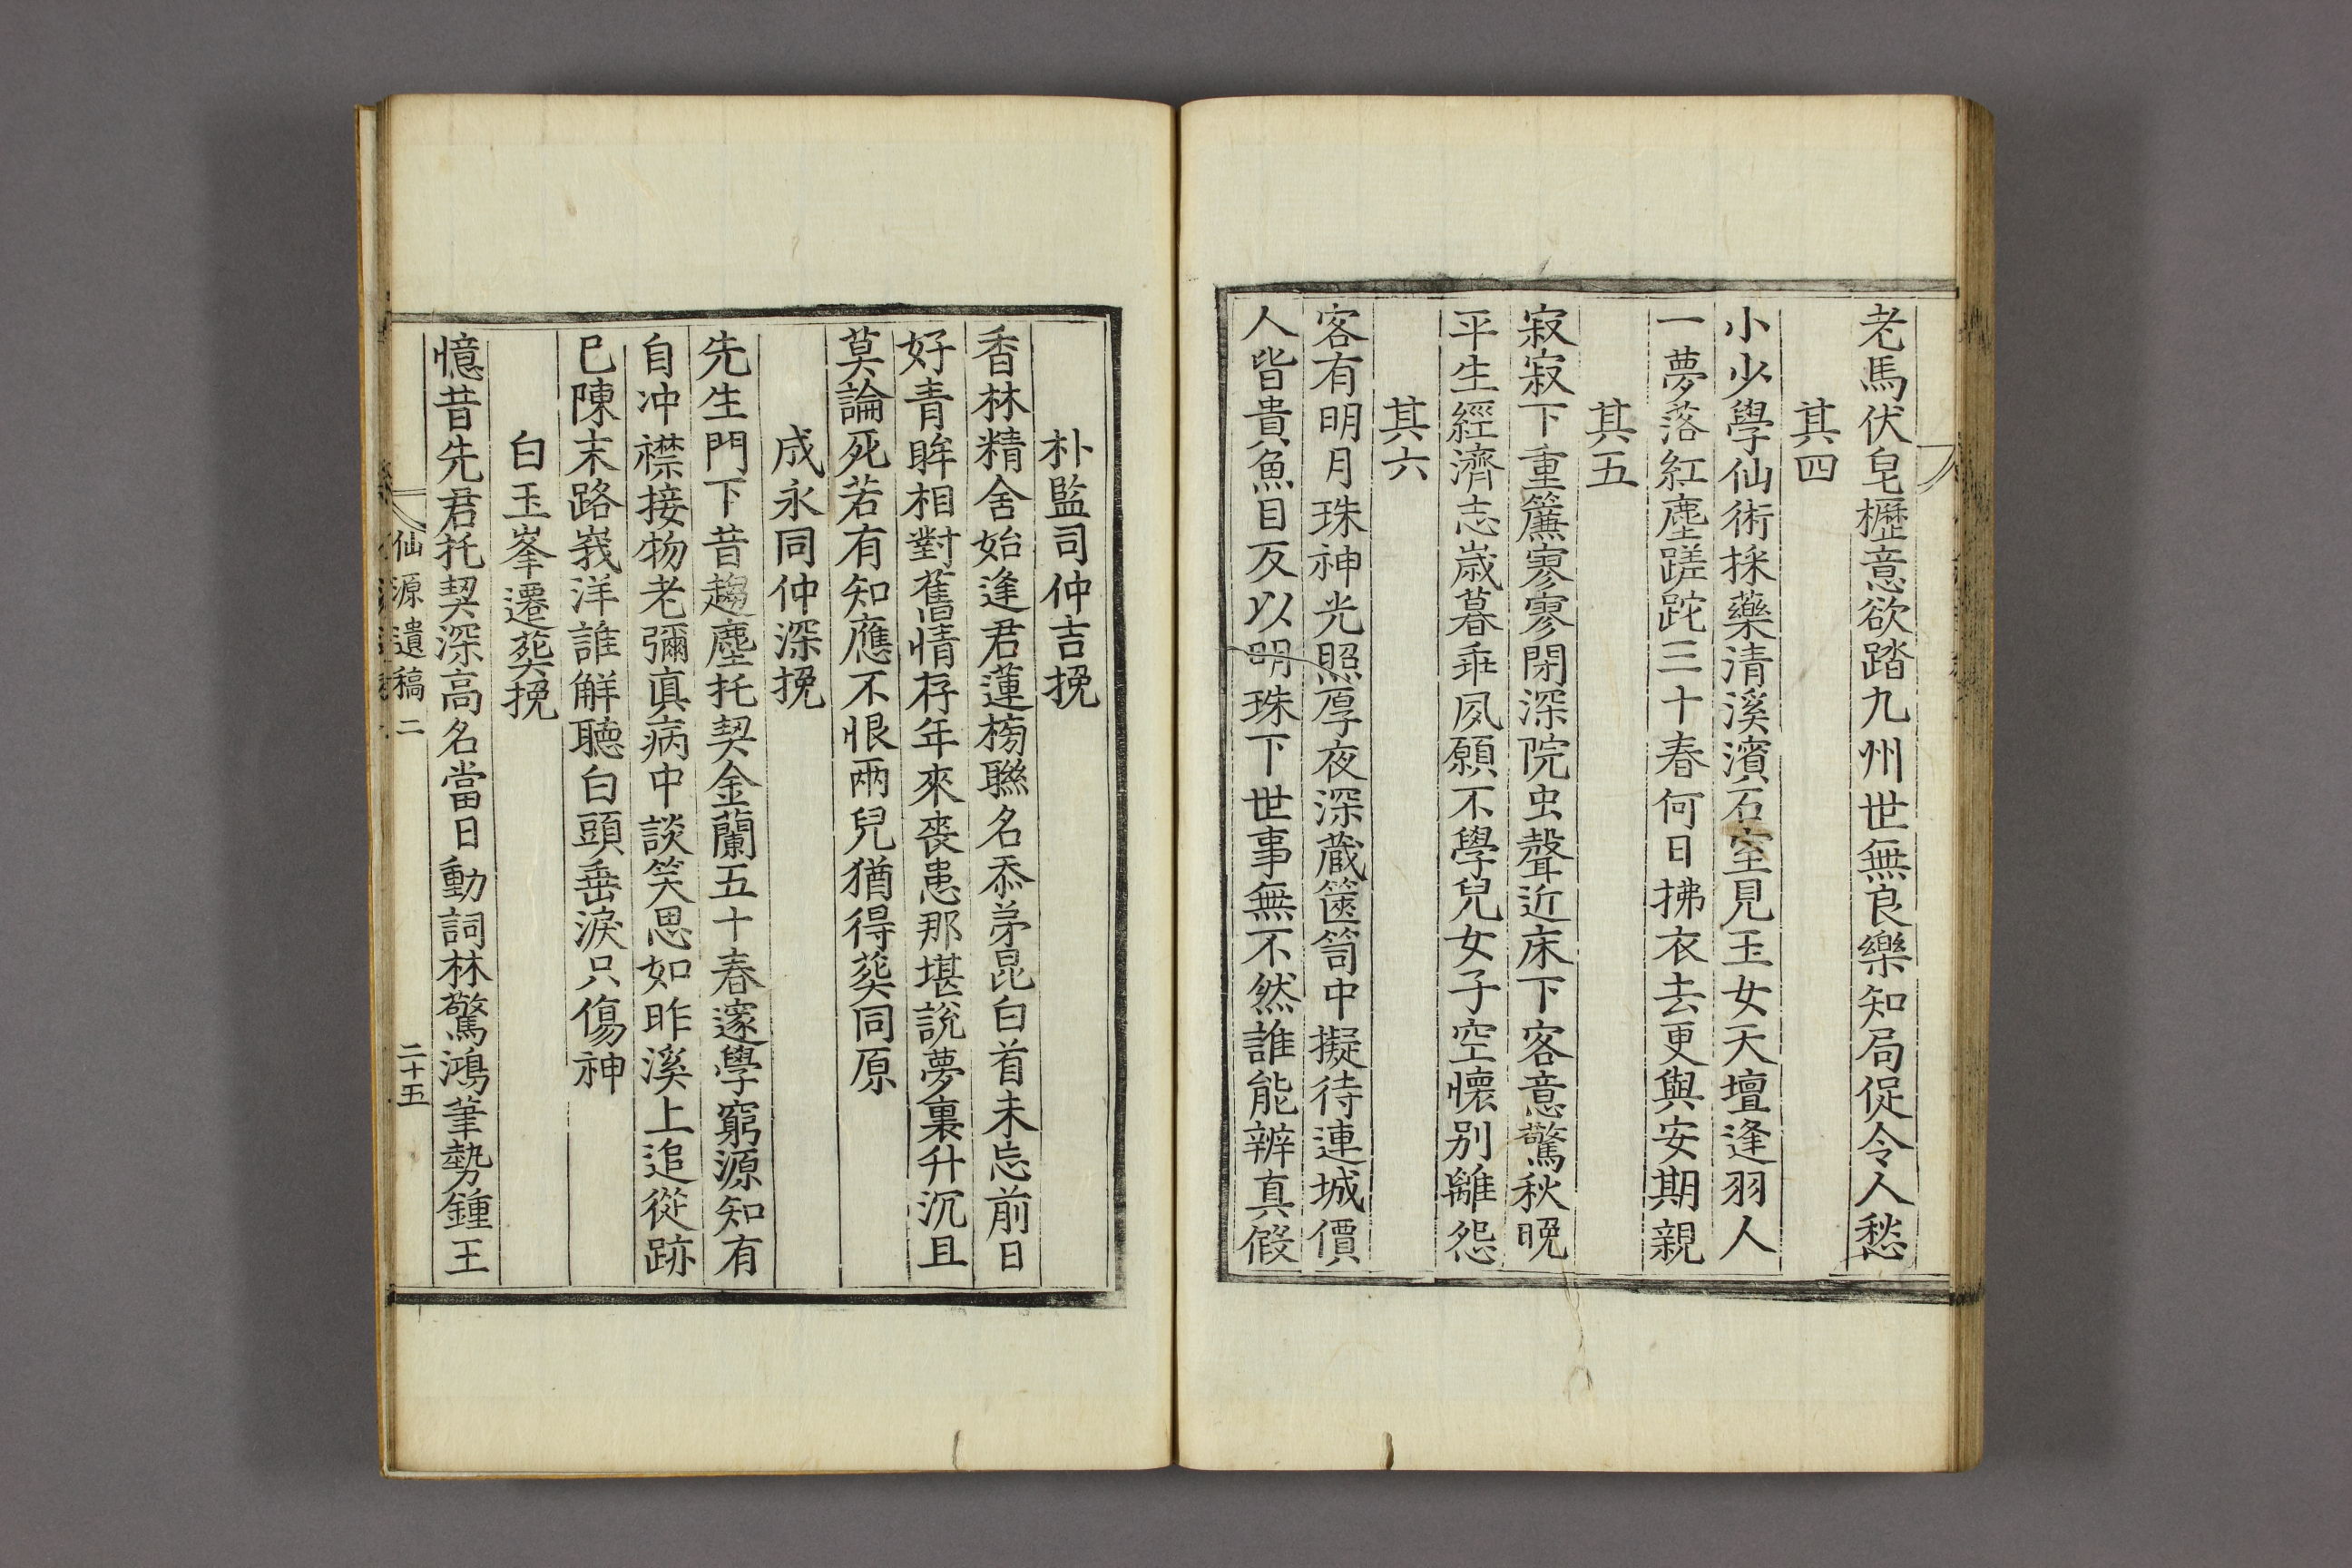 老馬伏皂櫪意欲踏九州世無良樂知局促令人愁
其四
小少學仙術採藥清溪濱石室見玉女天壇逢羽人
一夢落紅塵蹉跎三十春何日拂衣去更與安期親
其五
寂寂下重簾寥寥閉深院虫聲近床下客意驚秋晚
平生經濟志歲暮乖夙願不學兒女子空懷別離怨
其六
客有明月珠神光照厚夜深藏篋笥中擬待連城價
人皆貴魚目反以明珠下世事無不然誰能辨真假
朴監司仲吉挽
香林精舍始逢君蓮榜聯名忝弟昆白首未忘前日
好青眸相對舊情存年來喪患那堪說夢裏升沉且
莫論死若有知應不恨兩兒猶得葬同原
成永同仲深挽
先生門下昔趨塵托契金蘭五十春邃學窮源知有
自冲襟接物老彌真病中談笑思如昨溪上追從跡
已陳末路峩洋誰解聽白頭垂淚只傷神
白玉峯遷葬挽
憶昔先君托契深高名當日動詞林驚鴻筆勢鍾王
仙源遺稿 二 二十五